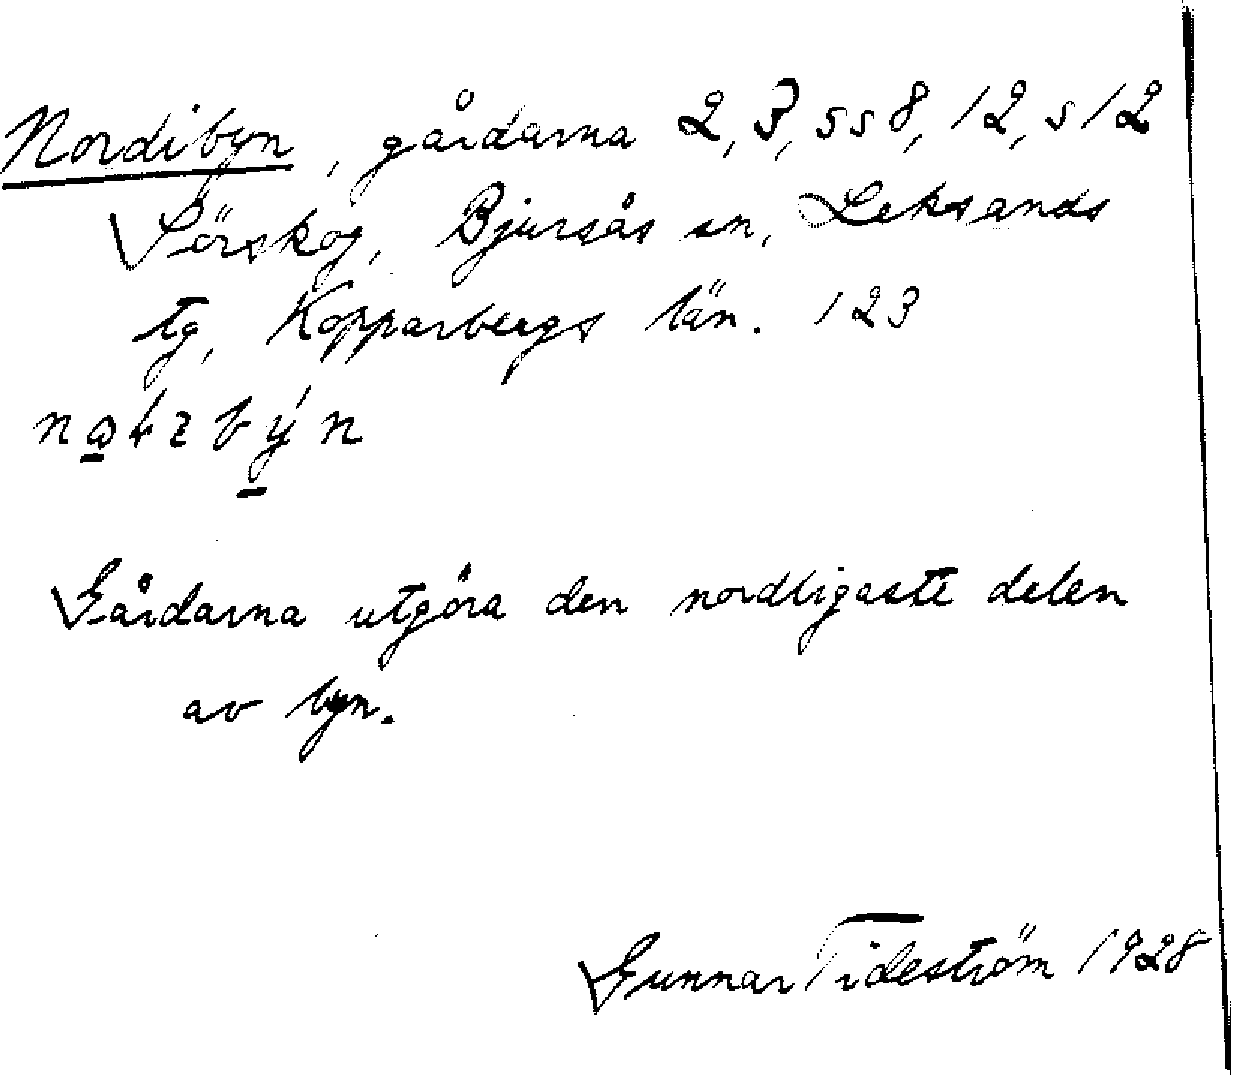 Nordibyn, gårdarna 2, 3, ss 8, 12, s 12
Sörskog, Bjursås sn, Leksands
tg, Kopparbergs län. 123
Gårdarna utgöra den nordligaste delen
av byn.
Gunnar Tideström 1928